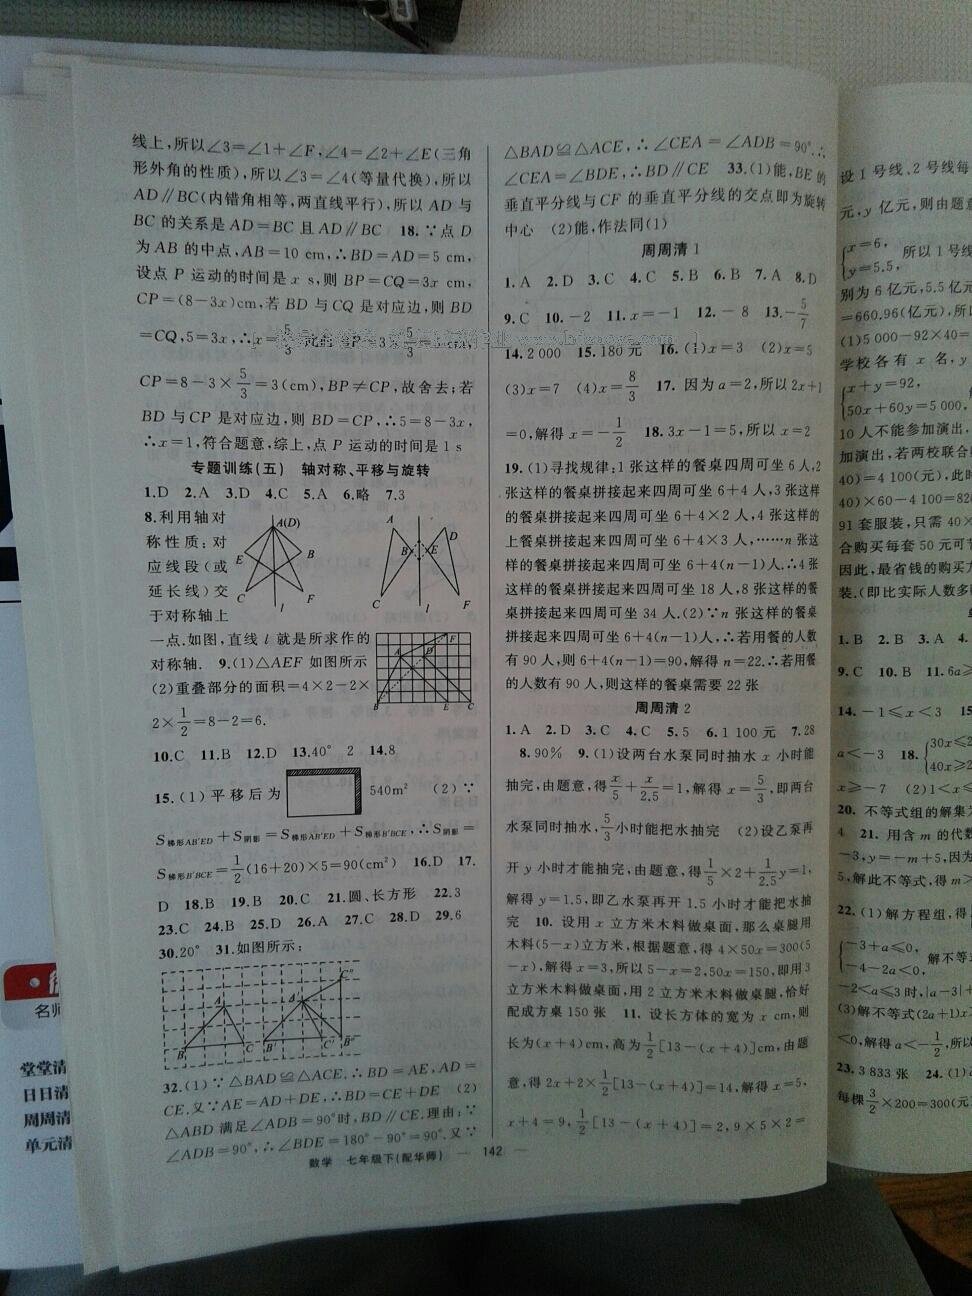 线上,所以∠3=∠1+∠F,∠4=∠2+∠E(三角
形外角的性质),所以∠3=∠4(等量代换),所以
AD∥BC(内错角相等,两直线平行),所以 AD 与
BC 的关系是 AD=BC 且 AD∥BC 18.∵点 D
为 AB 的中点,AB=10 cm,∴BD=AD=5 cm,
设点 P 运动的时间是 x s,则 BP=CQ=3x cm,
CP=(8-3x)cm,若 BD 与 CQ 是对应边,则 BD
=CQ,5=3x,∴x=5/3
CP=8-3×5/3=3(cm),BP≠CP,故舍去;若
BD 与 CP 是对应边,则 BD=CP,∴5=8-3x,
∴x=1,符合题意,综上,点 P 运动的时间是 1 s
专题训练(五) 轴对称、平移与旋转
1.D 2.A 3.D 4.C 5.A 6.略 7.3
8.利用轴对
称性质:对
应线段(或
延长线)交
于对称轴上
A(D)
E B
C F
l
A D
B E
C F
l
一点.如图,直线 l 就是所求作的
对称轴. 9.(1)△AEF 如图所示
(2)重叠部分的面积=4×2-2×
2×1/2=8-2=6.
F
A D
B E C
10.C 11.B 12.D 13.40° 2 14.8
15.(1)平移后为 540m² (2)∵
S梯形AB'ED+S阴影=S梯形AB'ED+S梯形B'BCE,∴S阴影=
S梯形B'BCE=1/2(16+20)×5=90(cm²) 16.D 17.
D 18.B 19.B 20.C 21.圆、长方形 22.3
23.C 24.B 25.D 26.A 27.C 28.D 29.6
30.20° 31.如图所示:
C″
A A′
B C B′ C′ B″
32.(1)∵△BAD≌△ACE.∴BD=AE,AD=
CE.又∵AE=AD+DE,∴BD=CE+DE (2)
△ABD 满足∠ADB=90°时,BD∥CE.理由:∵
∠ADB=90°,∴∠BDE=180°-90°=90°.又∵
△BAD≌△ACE,∴∠CEA=∠ADB=90°.∴
∠CEA=∠BDE,∴BD∥CE 33.(1)能,BE的
垂直平分线与 CF 的垂直平分线的交点即为旋转
中心 (2)能,作法同(1)
周周清 1
1.A 2.D 3.C 4.C 5.B 6.B 7.A 8.D
9.C 10.-2 11.x=-1 12.-8 13.-5/7
14.2 000 15.180 元 16.(1)x=3 (2)x=5
(3)x=7 (4)x=8/3 17.因为 a=2,所以 2x+1
=0,解得 x=-1/2 18.3x-1=5,所以 x=2
19.(1)寻找规律:1 张这样的餐桌四周可坐 6 人,2
张这样的餐桌拼接起来四周可坐 6+4 人,3 张这样
的餐桌拼接起来四周可坐 6+4×2 人,4 张这样的
上餐桌拼接起来四周可坐 6+4×3 人,……n 张这
样的餐桌拼接起来四周可坐 6+4(n-1)人.∴4 张
这样的餐桌拼接起来四周可坐 18 人,8 张这样的餐
桌拼接起来四周可坐 34 人.(2)∵n 张这样的餐桌
拼接起来四周可坐 6+4(n-1)人,∴若用餐的人数
有 90 人,则 6+4(n-1)=90,解得 n=22.∴若用餐
的人数有 90 人,则这样的餐桌需要 22 张
周周清 2
1.A 2.D 3.C 4.C 5.5 6.1 100 元 7.28
8.90% 9.(1)设两台水泵同时抽水 x 小时能
抽完,由题意,得x/5+x/2.5=1,解得 x=5/3,即两台
水泵同时抽水,5/3小时能把水抽完 (2)设乙泵再
开 y 小时才能抽完,由题意,得1/5×2+1/2.5y=1,
解得 y=1.5,即乙水泵再开 1.5 小时才能把水抽
完 10.设用 x 立方米木料做桌面,那么桌腿用
木料(5-x)立方米,根据题意,得 4×50x=300(5
-x),解得 x=3,所以 5-x=2,50x=150,即用3
立方米木料做桌面,用 2 立方米木料做桌腿,恰好
配成方桌 150 张 11.设长方体的宽为 x cm,则
长为(x+4)cm,高为1/2[13-(x+4)]cm,由题
意,得 2x+2×1/2[13-(x+4)]=14,解得 x=5,
x+4=9,1/2[13-(x+4)]=2,9×5×2=
数学 七年级下(配华师) — 142 —
设 1 号线、2 号线每
元,y 亿元,则由题意
x=6,
y=5.5,
所以 1 号线
别为 6 亿元,5.5 亿元
=660.96(亿元),所以
(1)5 000-92×40=
学校各有 x 名,y
x+y=92,
50x+60y=5 000,
10 人不能参加演出,
加演出,若两校联合购
40)=4 100(元),此时
40)×60-4 100=820
91 套服装,只需 40×
合购买每套 50 元可节
因此,最省钱的购买方
装.(即比实际人数多
1.B 2.B 3.A 4.
9.C 10.B 11.6a≥
14.-1≤x<3 15
a<-3 18.
30x≤2
40x≥2
x≥-7 (2)1<x≤
20.不等式组的解集为
4 21.用含 m 的代数
-3,y=-m+5,因为
5,解此不等式,得 m≥
22.(1)解方程组,得
-3+a≤0,
-4-2a<0,
解不等式
-2<a≤3时,|a-3|+
(3)解不等式(2a+1)x>
<0,解得 a<-1/2,所以
23.3 833 张 24.(1)
每棵3/2×200=300(元)
名师
堂堂清
日日清
周周清
单元清